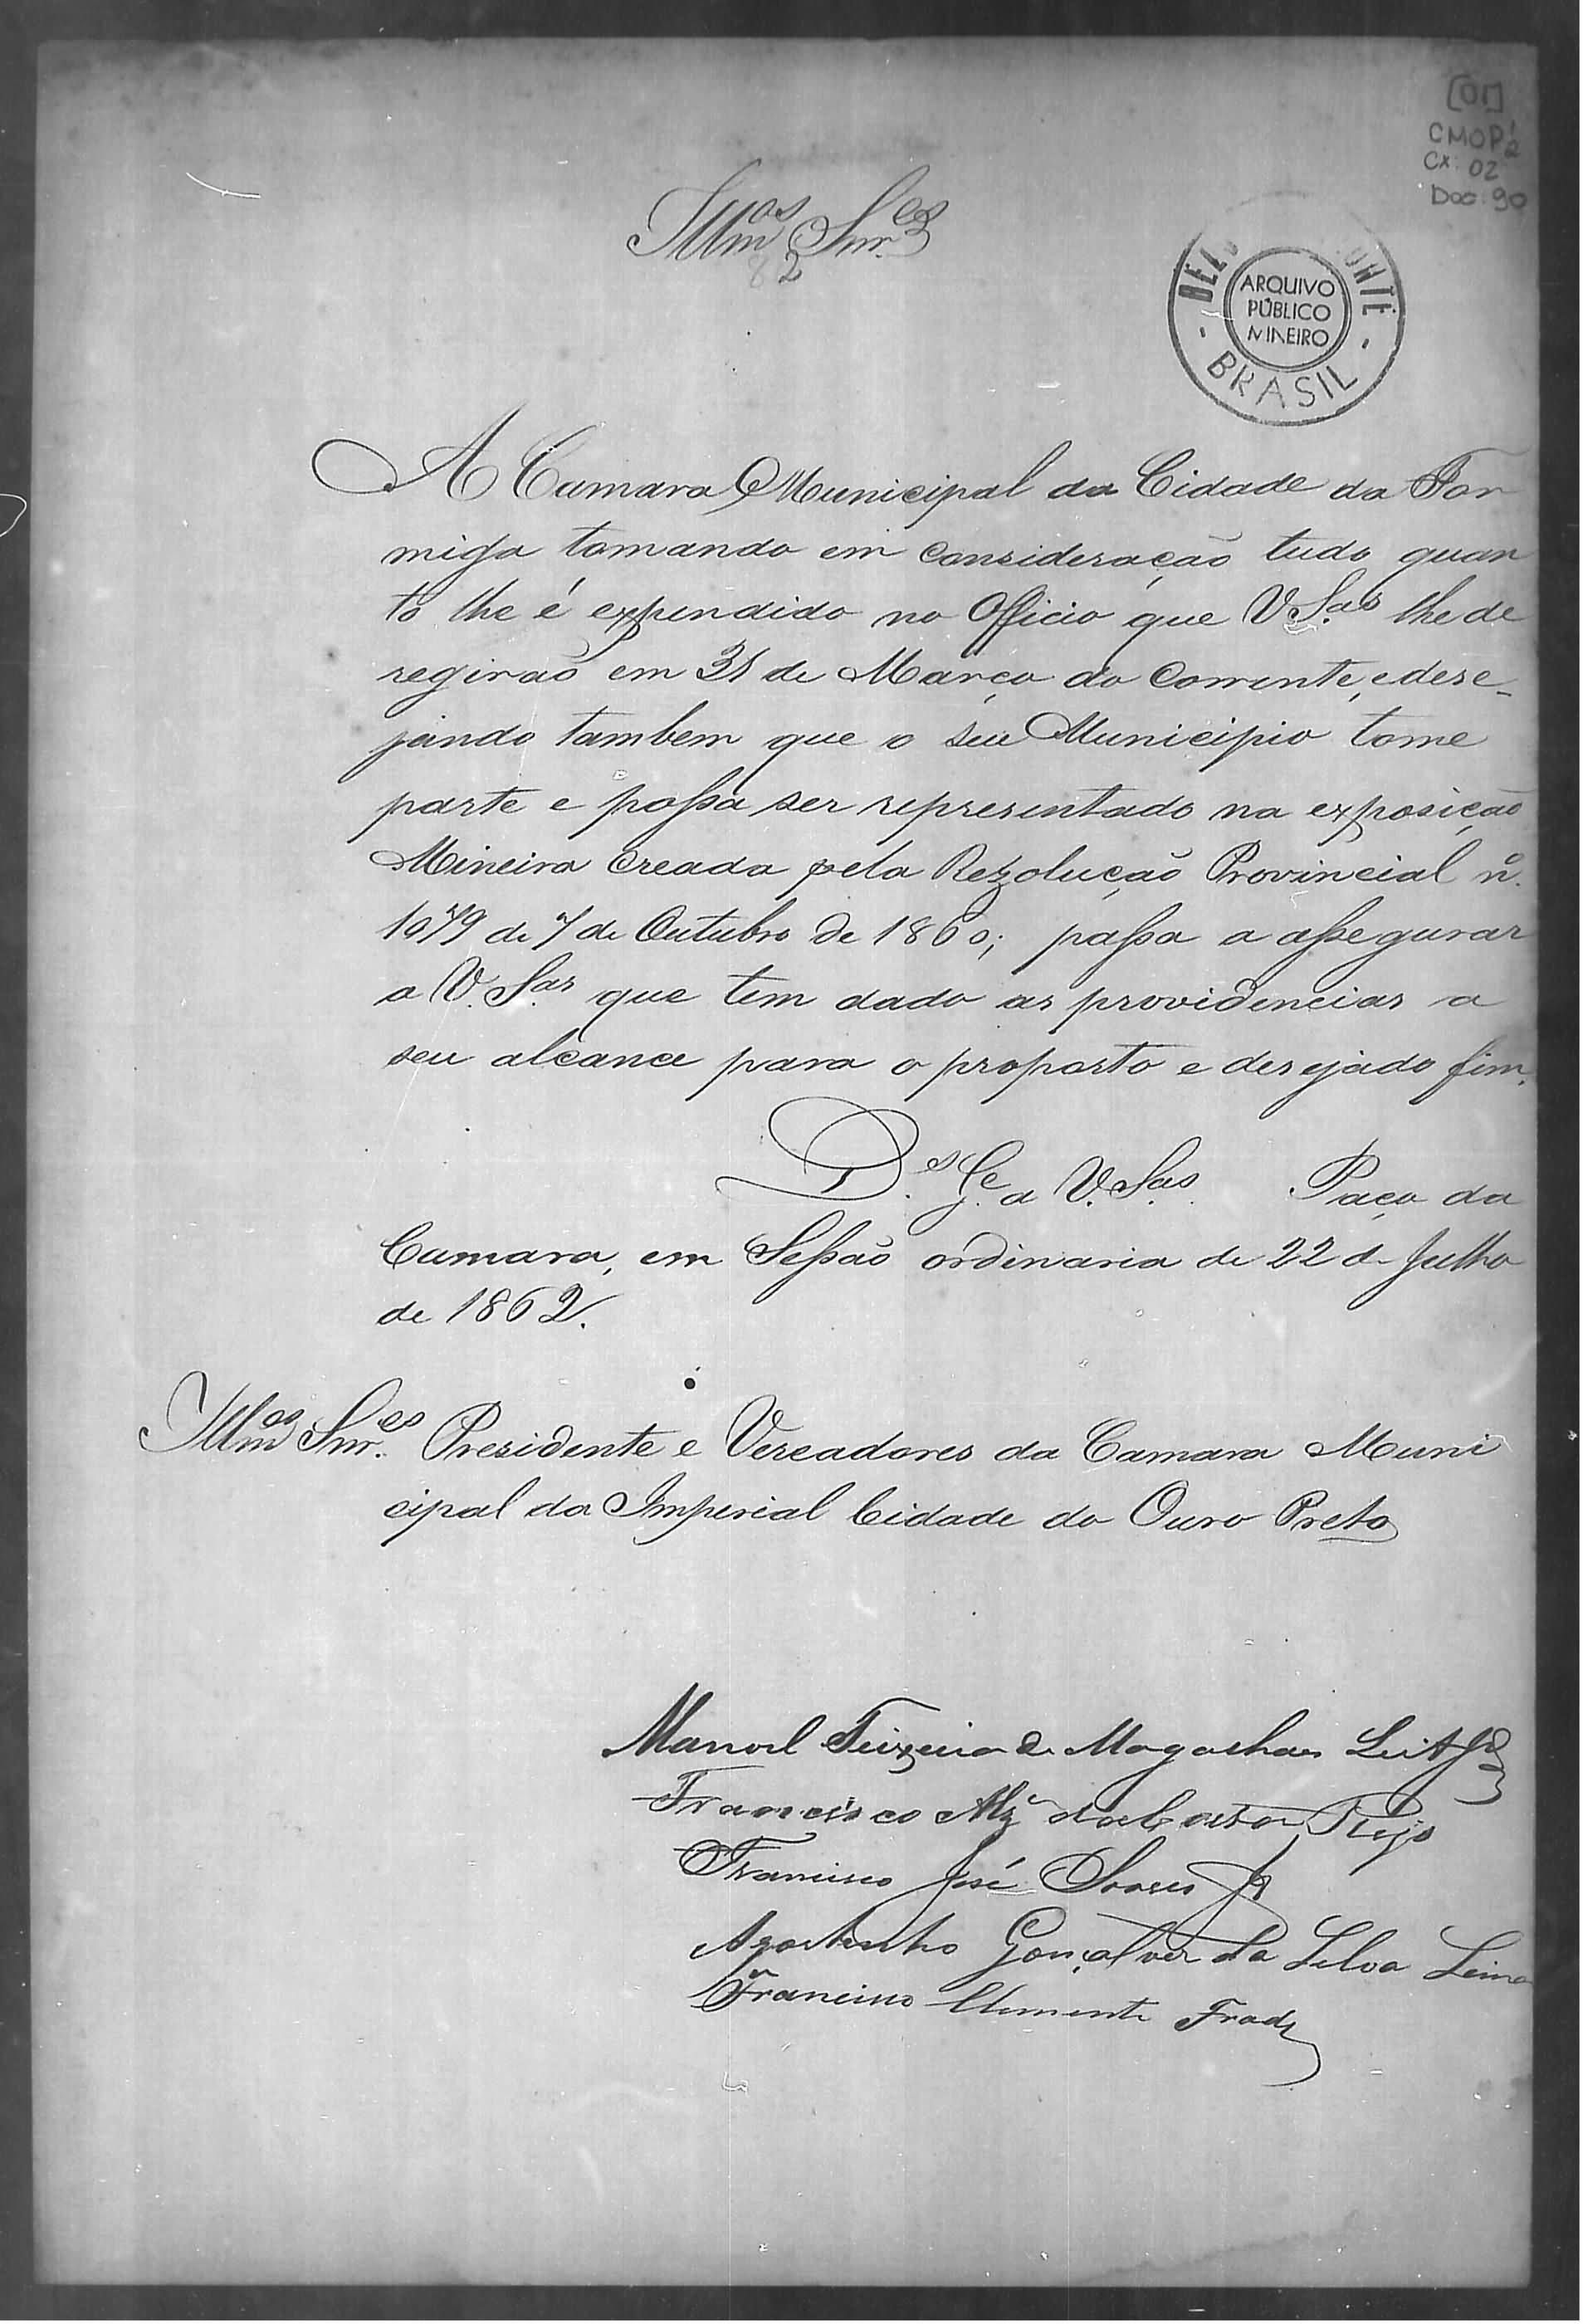 [01]
CMOP 1/2
Cx: 02
Doc: 90
Illmos Snr.es
82
BELO HORIZONTE
ARQUIVO
PÚBLICO
MINEIRO
- BRASIL -
A Camara Municipal da Cidade da For
miga tomando em consideração tudo quan
to lhe é expendido no Officio que V.Sas lhe de
regirão em 31 de Março do Corrente, e dese-
jando tambem que o seu Municipio tome
parte e possa ser representado na exposição
Mineira Creada pela Rezolução Provincial nº.
1079 de 7 de Outubro de 1860; passa a assegurar
a V. Sas que tem dado as providencias a
seu alcance para o proposto e desejado fim.
D.s G.e a V. Sas. Paço da
Camara, em Sessão ordinaria de 22 de Julho
de 1862.
Illmos Snr.es Presidente e Vereadores da Camara Muni
cipal da Imperial Cidade do Ouro Preto
Manoel Teixeira de Magalhaes Leite
Francisco Alz' da Costa
Francisco José Soares Jr
Agostinho Gonçalves da Silva Lima
Francisco Clemente